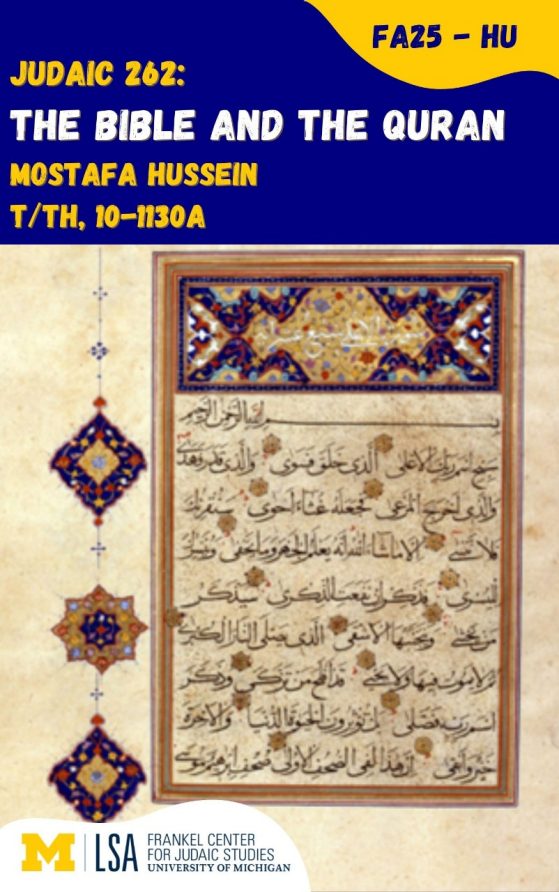 FA25 – HU
JUDAIC 262:
THE BIBLE AND THE QURAN
MOSTAFA HUSSEIN
T/TH, 10-1130A
بسم الله الرحمن الرحيم
سبح اسم ربك الاعلى الذى خلق فسوى والذى قدر فهدى
والذى اخرج المرعى فجعله غثاء احوى سنقرئك
فلا تنسى الا ماشاء الله انه يعلم الجهر وما يخفى ونيسرك
لليسرى فذكر ان نفعت الذكرى سيذكر
من يخشى ويتجنبها الاشقى الذى يصلى النار الكبرى
ثم لا يموت فيها ولا يحيى قد افلح من تزكى وذكر
اسم ربه فصلى بل تؤثرون الحيوة الدنيا والاخرة
خير وابقى ان هذا لفى الصحف الاولى صحف ابرهيم وموسى
M LSA FRANKEL CENTER
FOR JUDAIC STUDIES
UNIVERSITY OF MICHIGAN